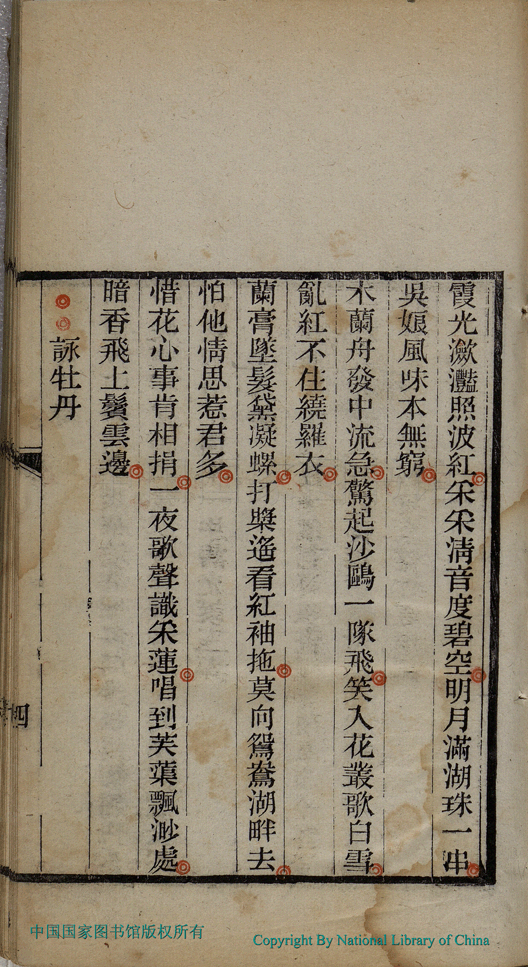 霞光瀲灧照波紅采采清音度碧空明月滿湖珠一串
吳娘風味本無窮
木蘭舟發中流急驚起沙鷗一隊飛笑入花叢歌白雪
亂紅不住繞羅衣
蘭膏墜髮黛凝螺打槳遙看紅袖拖莫向鴛鴦湖畔去
怕他情思惹君多
惜花心事肯相捐一夜歌聲識采蓮唱到芙蕖飄渺處
暗香飛上鬢雲邊
詠牡丹
中国国家图书馆版权所有
Copyright By National Library of China